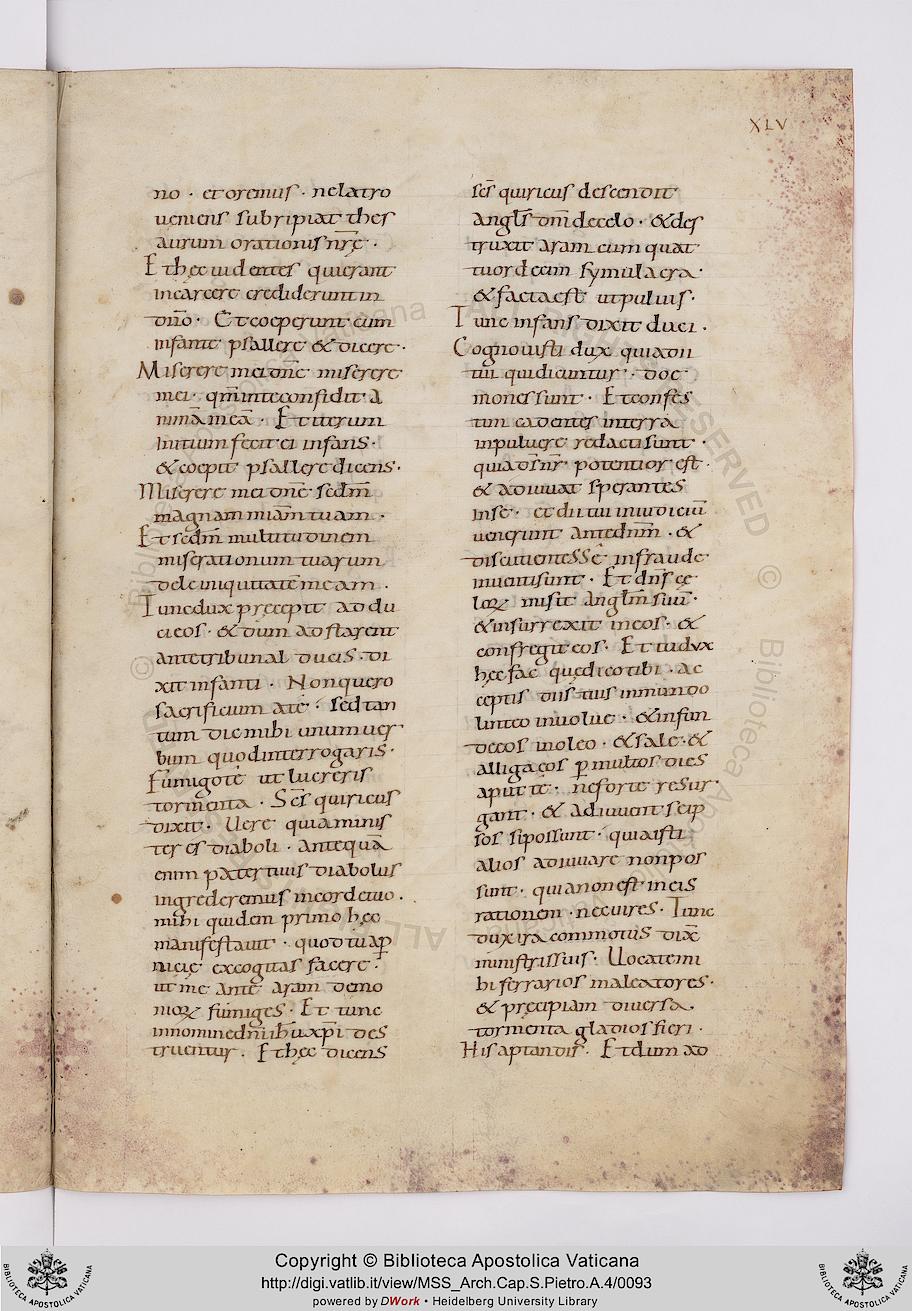 XLV
no · et oremus · ne latro
ueniens subripiat thes
aurum orationis nrē ·
Et hęc uidentes qui erant
in carcere crediderunt in
dno · Et coeperunt cum
infante psallere & dicere ·
Miserere mei dnē miserere
mei · qm̄ in te confidit a
nima mea · Et iterum
initium fecit ei infans ·
& coepit psallere dicens ·
Miserere mei dnē sedm̄
magnam miam̄ tuam ·
Et sedm̄ multitudinem
miserationum tuarum
dele iniquitatē meam ·
Tunc dux pręcepit ad du
ci eos · & dum adstarent
ante tribunal ducis · di
xit infanti · Non quero
sacrificium a te · sed tan
tum dic mihi unum uer
bum quod interrogaris ·
fumigote ut lucreris
tormenta · Scs̄ quiricus
dixit · Uere quia minis
ter es diaboli · antequā
enim pater tuus diabolus
ingrederemus in corde tuo ·
mihi quidem primo hęc
manifestauit · quod tu aꝑ
nicię excogitas facere ·
ut me ante aram demo
nioꝝ fumiges · Et tunc
in nomine dn̄i ih̄u xp̄i des
truentur · Et hęc dicens
scs̄ quiricus descendit
angls̄ dni de celo · & des
truxit aram cum quat
tuordecim symulacra ·
& facta est ut puluis ·
Tunc infans dixit duci ·
Cognouisti dux quia dii
tui qui dicuntur · doc
mones sunt · Et confes
tim cadentes in terra
in puluere redacti sunt ·
quia ds̄ nr̄ potentior est ·
& adiuuat sperantes
in se · et dii tui in iudiciū
uenerunt ante dnm̄ · &
discutientes se in fraude
inuenti sunt · Et dns̄ cę
loꝝ misit anglm̄ suū ·
& insurrexit in eos · &
confregit eos · Et tu dux
hęc fac quę dico tibi · ac
ceptis diis tuis in mundo
linteo inuolue · & infun
de eos in oleo · & sale · &
alliga eos ꝑ multos dies
aput te · ne forte resur
gant · & adiuuent seip
sos si possunt · quia isti
alios adiuuare non pos
sunt · quia non est in eis
rationem · nec uires · Tunc
dux ira commotus dixt̄
ministris suis · Uocate mi
hi ferrarios maleatores ·
& pręcipiam diuersa
tormenta gladios fieri ·
His aptandis · Et dum ad
Copyright © Biblioteca Apostolica Vaticana
http://digi.vatlib.it/view/MSS_Arch.Cap.S.Pietro.A.4/0093
powered by DWork · Heidelberg University Library